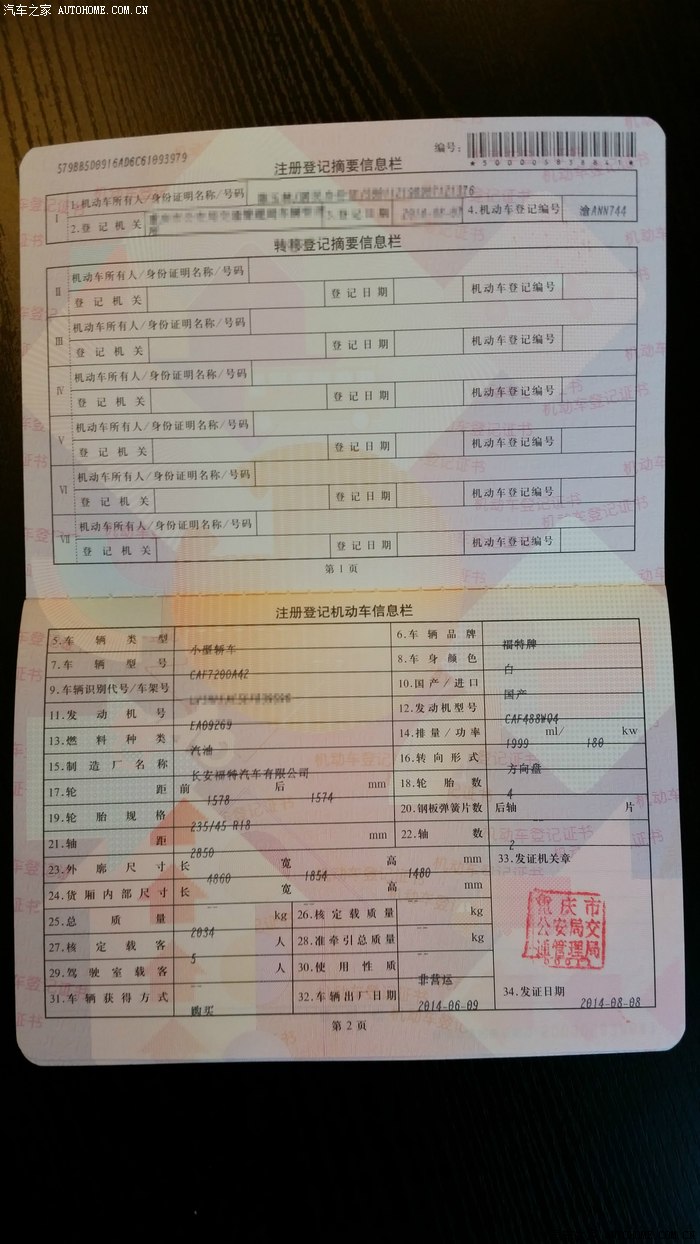 汽车之家 AUTOHOME.COM.CN
579BB5D0916AD6C61093979
编号:
*500005838841*
注册登记摘要信息栏
Ⅰ 1.机动车所有人/身份证明名称/号码
2.登记机关 3.登记日期 4.机动车登记编号 渝ANN744
转移登记摘要信息栏
Ⅱ 机动车所有人/身份证明名称/号码
登记机关 登记日期 机动车登记编号
Ⅲ 机动车所有人/身份证明名称/号码
登记机关 登记日期 机动车登记编号
Ⅳ 机动车所有人/身份证明名称/号码
登记机关 登记日期 机动车登记编号
Ⅴ 机动车所有人/身份证明名称/号码
登记机关 登记日期 机动车登记编号
Ⅵ 机动车所有人/身份证明名称/号码
登记机关 登记日期 机动车登记编号
Ⅶ 机动车所有人/身份证明名称/号码
登记机关 登记日期 机动车登记编号
第1页
注册登记机动车信息栏
5.车辆类型 小型轿车 6.车辆品牌 福特牌
7.车辆型号 CAF7200A42 8.车身颜色 白
9.车辆识别代号/车架号 10.国产/进口 国产
11.发动机号 EA09269 12.发动机型号 CAF488WQ4
13.燃料种类 汽油 14.排量/功率 1999 ml/ 180 kw
15.制造厂名称 长安福特汽车有限公司 16.转向形式 方向盘
17.轮距 前 1578 后 1574 mm 18.轮胎数 4
19.轮胎规格 235/45 R18 20.钢板弹簧片数 后轴 -- 片
21.轴距 2850 mm 22.轴数 2
23.外廓尺寸 长 4860 宽 1854 高 1480 mm 33.发证机关章
24.货厢内部尺寸 长 -- 宽 -- 高 -- mm
25.总质量 2034 kg 26.核定载质量 -- kg
27.核定载客 5 人 28.准牵引总质量 -- kg
29.驾驶室载客 -- 人 30.使用性质 非营运
31.车辆获得方式 购买 32.车辆出厂日期 2014-06-09 34.发证日期 2014-08-08
重庆市
公安局交
通管理局
第2页